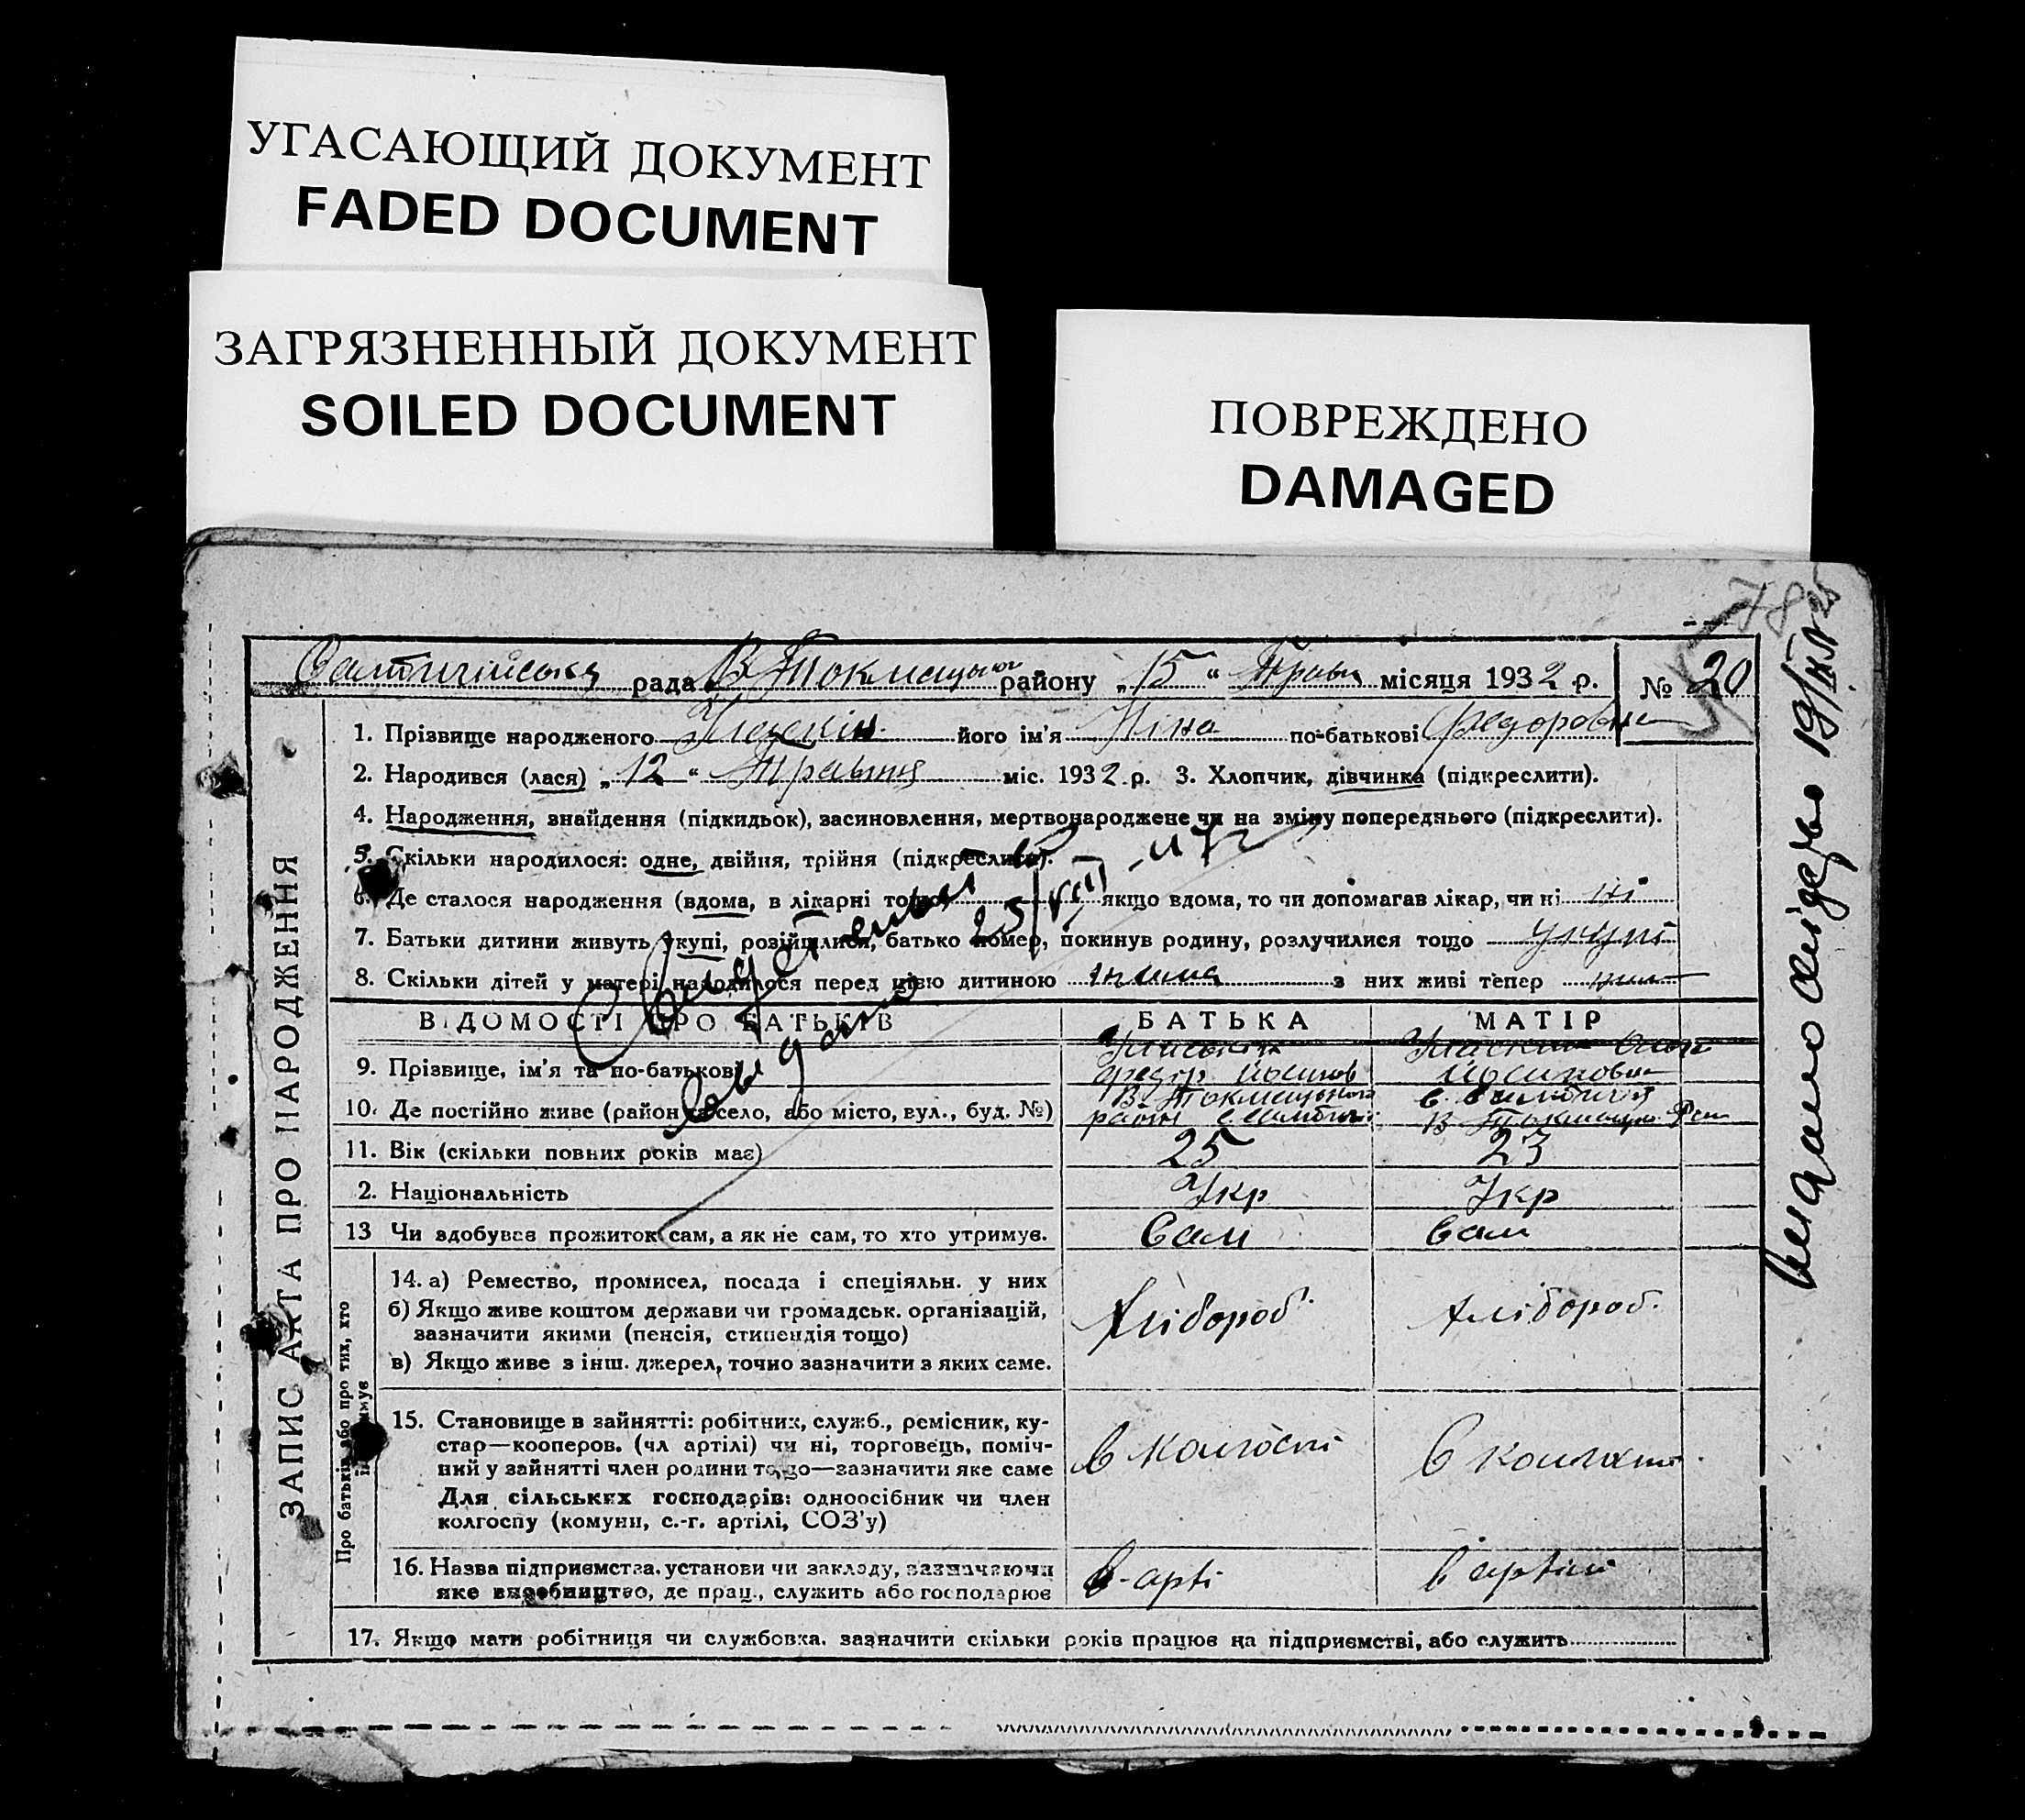 УГАСАЮЩИЙ ДОКУМЕНТ
FADED DOCUMENT
ЗАГРЯЗНЕННЫЙ ДОКУМЕНТ
SOILED DOCUMENT
ПОВРЕЖДЕНО
DAMAGED
78
рада В Токмацького району „15“ Трав місяця 1932 р. № 20
1. Прізвище народженого його ім'я Ніна по-батькові Федоровна
2. Народився (лася) „12“ Травня міс. 1932 р. 3. Хлопчик, дівчинка (підкреслити).
4. Народження, знайдення (підкидьок), засиновлення, мертвонароджене чи на зміну попереднього (підкреслити).
5. Скільки народилося: одне, двійня, трійня (підкреслити).
6. Де сталося народження (вдома, в лікарні тощо якщо вдома, то чи допомагав лікар, чи ні ні
7. Батьки дитини живуть укупі, розійшлися, батько помер, покинув родину, розлучилися тощо укупі
8. Скільки дітей у матері народилося перед цією дитиною з них живі тепер
ВІДОМОСТІ ПРО БАТЬКІВ БАТЬКА МАТІР
9. Прізвище, ім'я та по-батькові Федор
10. Де постійно живе (район та село, або місто, вул., буд. №) В. Токмацького район В Токмацьк
11. Вік (скільки повних років має) 25 23
2. Національність Укр Укр
13 Чи здобував прожиток сам, а як не сам, то хто утримує. Сам Сам
14. а) Ремество, промисел, посада і спеціяльн. у них
б) Якщо живе коштом держави чи громадськ. організацій,
зазначити якими (пенсія, стипендія тощо) Хлібороб Хлібороб.
в) Якщо живе з інш. джерел, точно зазначити з яких саме.
15. Становище в зайнятті: робітник, служб., ремісник, ку-
стар—кооперов. (чл артілі) чи ні, торговець, поміч-
ний у зайнятті член родини тощо—зазначити яке саме в колгоспі в колгоспі
Для сільських господарів: одноосібник чи член
колгоспу (комуни, с.-г. артілі, СОЗ'у)
16. Назва підприємства, установи чи закладу, зазначаючи
яке виробництво, де прац., служить або господарює в-арті в артілі
17. Якщо мати робітниця чи службовка, зазначити скільки років працює на підприємстві, або служить
ЗАПИС АКТА ПРО НАРОДЖЕННЯ
Про батьків або про тих, хто